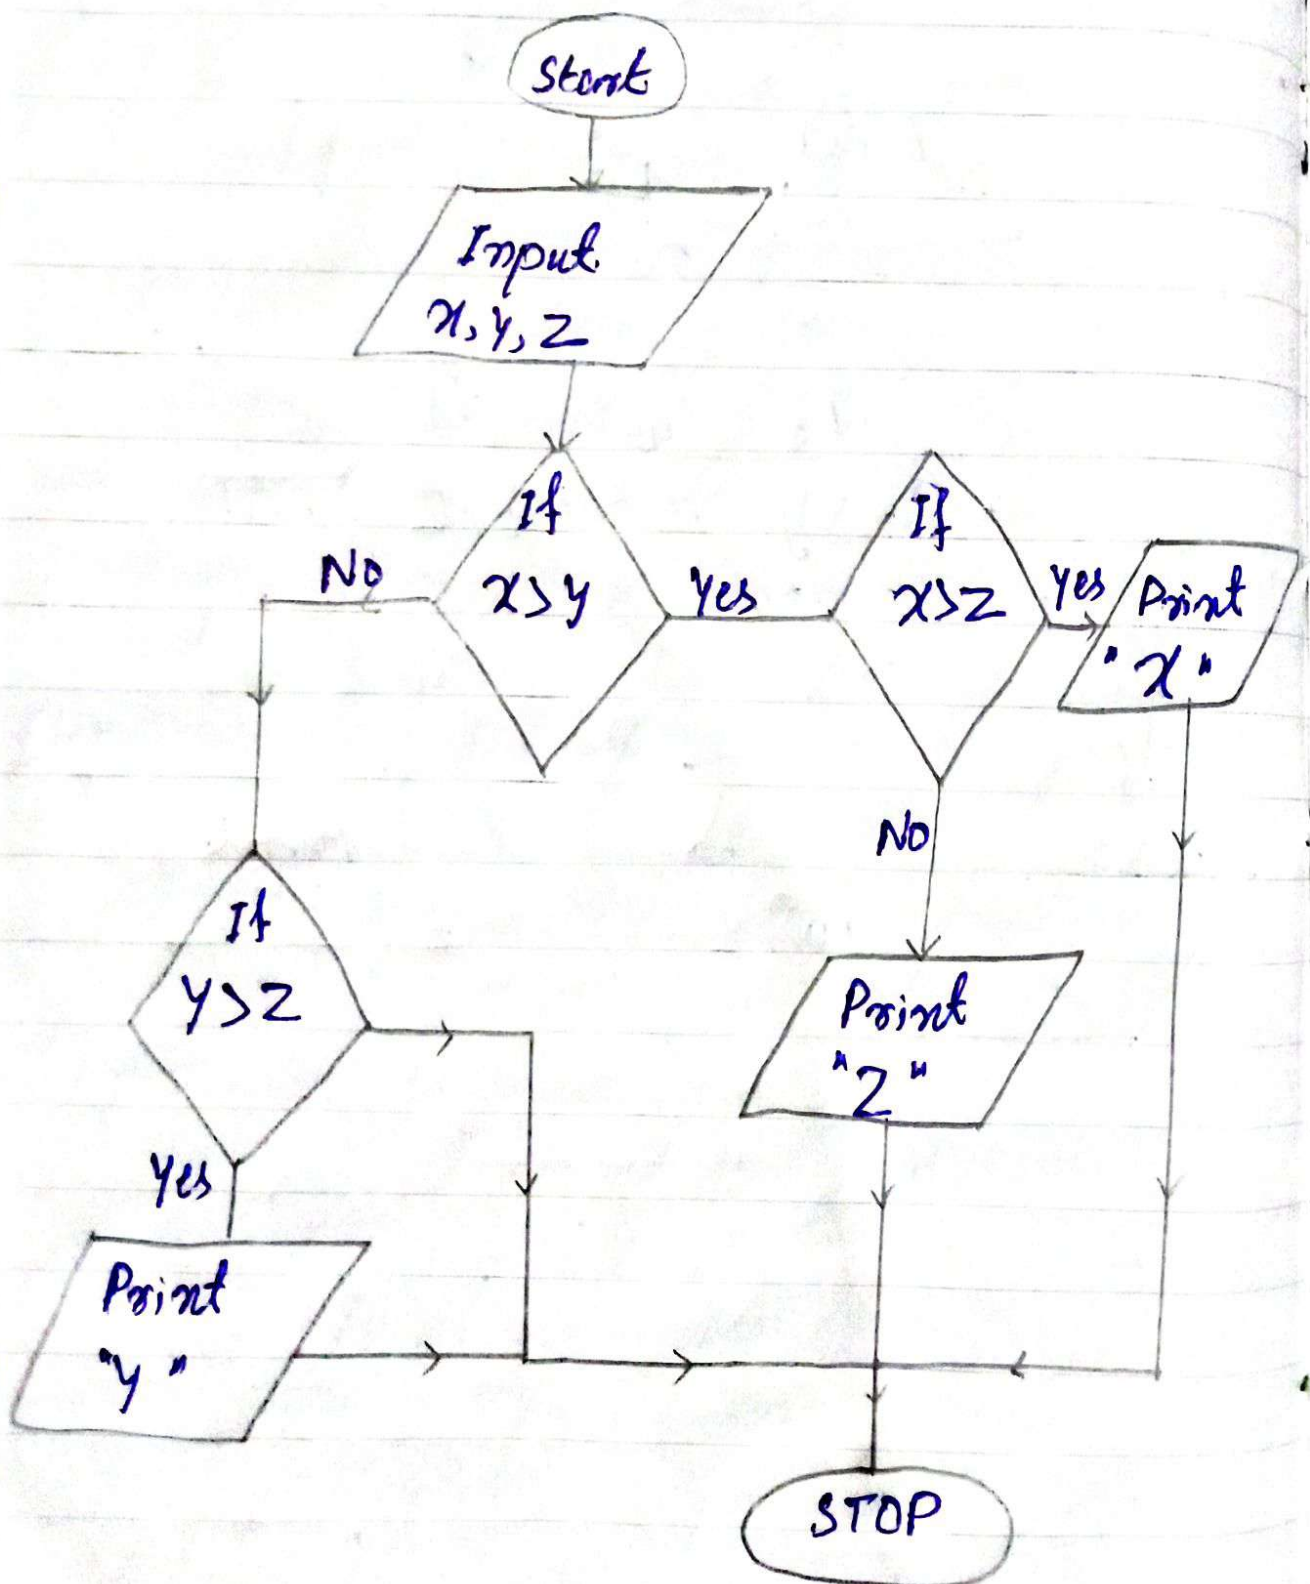 Start
Input
x, y, z
If
x>y
No
Yes
If
x>z
Yes
Print
"x"
No
Print
"Z"
If
Y>Z
Yes
Print
"y"
STOP